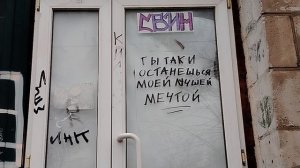 СВИН
ТЫ ТАКИ
ОСТАНЕШЬСЯ
МОЕЙ ЛУЧШЕЙ
МЕЧТОЙ
ИНК